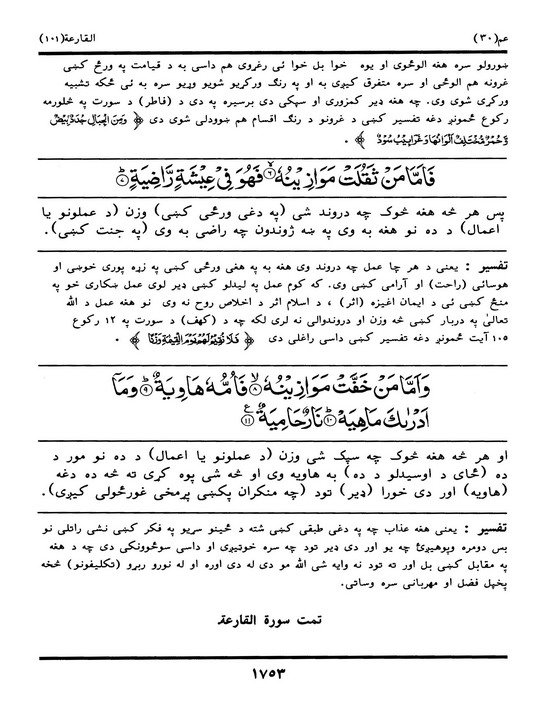 عم(۳۰) القارعة(۱۰۱)
ښورولو سره هغه الوځوی او یوه خوا بل خوا ئی رغړوی هم داسی به د قیامت په ورځ کښی
غرونه هم الوځی او سره متفرق کیږی به او په رنګ ورکړیو شویو وړیو سره به ئی ځکه تشبیه
ورکړی شوی وی. چه هغه ډیر کمزوری او سپکی دی برسیره په دی د (فاطر) د سورت په څلورمه
رکوع ځمونږ دغه تفسیر کښی د غرونو د رنګ اقسام هم ښوودلی شوی دی ﴿ وَمِنَ الْجِبَالِ جُدَدٌۢ بِيْضٌ
وَّحُمْرٌ مُّخْتَلِفٌ اَلْوَانُهَا وَغَرَابِيْبُ سُوْدٌ ﴾ .
فَاَمَّا مَنْ ثَقُلَتْ مَوَازِيْنُهٗ ۙ۶ فَهُوَ فِيْ عِيْشَةٍ رَّاضِيَةٍ ۷
پس هر څه هغه څوک چه دروند شی (په دغی ورځی کښی) وزن (د عملونو یا
اعمال) د ده نو هغه به وی په ښه ژوندون چه راضی به وی (په جنت کښی).
تفسیر : یعنی د هر چا عمل چه دروند وی هغه به په هغی ورځی کښی په زړه پوری خوښی او
هوسائی (راحت) او آرامی کښی وی. که کوم عمل په لیدلو کښی ډیر لوی عمل ښکاری خو په
منځ کښی ئی د ایمان اغیزه (اثر) ، د اسلام اثر د اخلاص روح نه وی نو هغه عمل د الله
تعالیٰ په دربار کښی څه وزن او دروندوالی نه لری لکه چه د (کهف) د سورت په ۱۲ رکوع
۱۰۵ آیت ځمونږ دغه تفسیر کښی داسی راغلی دی ﴿ فَلَا نُقِيْمُ لَهُمْ يَوْمَ الْقِيٰمَةِ وَزْنًا ﴾ .
وَاَمَّا مَنْ خَفَّتْ مَوَازِيْنُهٗ ۙ۸ فَاُمُّهٗ هَاوِيَةٌ ۹ وَمَآ
اَدْرٰىكَ مَاهِيَهْ ۱۰ نَارٌ حَامِيَةٌ ۱۱
او هر څه هغه څوک چه سپک شی وزن (د عملونو یا اعمال) د ده نو مور د
ده (ځای د اوسیدلو د ده) به هاویه وی او څه شی پوه کړی ته څه ده دغه
(هاویه) اور دی خورا (ډیر) تود (چه منکران پکښی پرمخی غورځولی کیږی).
تفسیر : یعنی هغه عذاب چه په دغی طبقی کښی شته د ځینو سړیو په فکر کښی نشی راتلی نو
بس دومره وپوهیږئ چه یو اور دی ډیر تود چه سره خوتیږی او داسی سوځوونکی دی چه د هغه
په مقابل کښی بل اور ته تود نه وایه شی الله مو دی له دی اوره او له نورو ربړو (تکلیفونو) څخه
پخپل فضل او مهربانی سره وساتی.
تمت سورة القارعة
۱۷۵۳